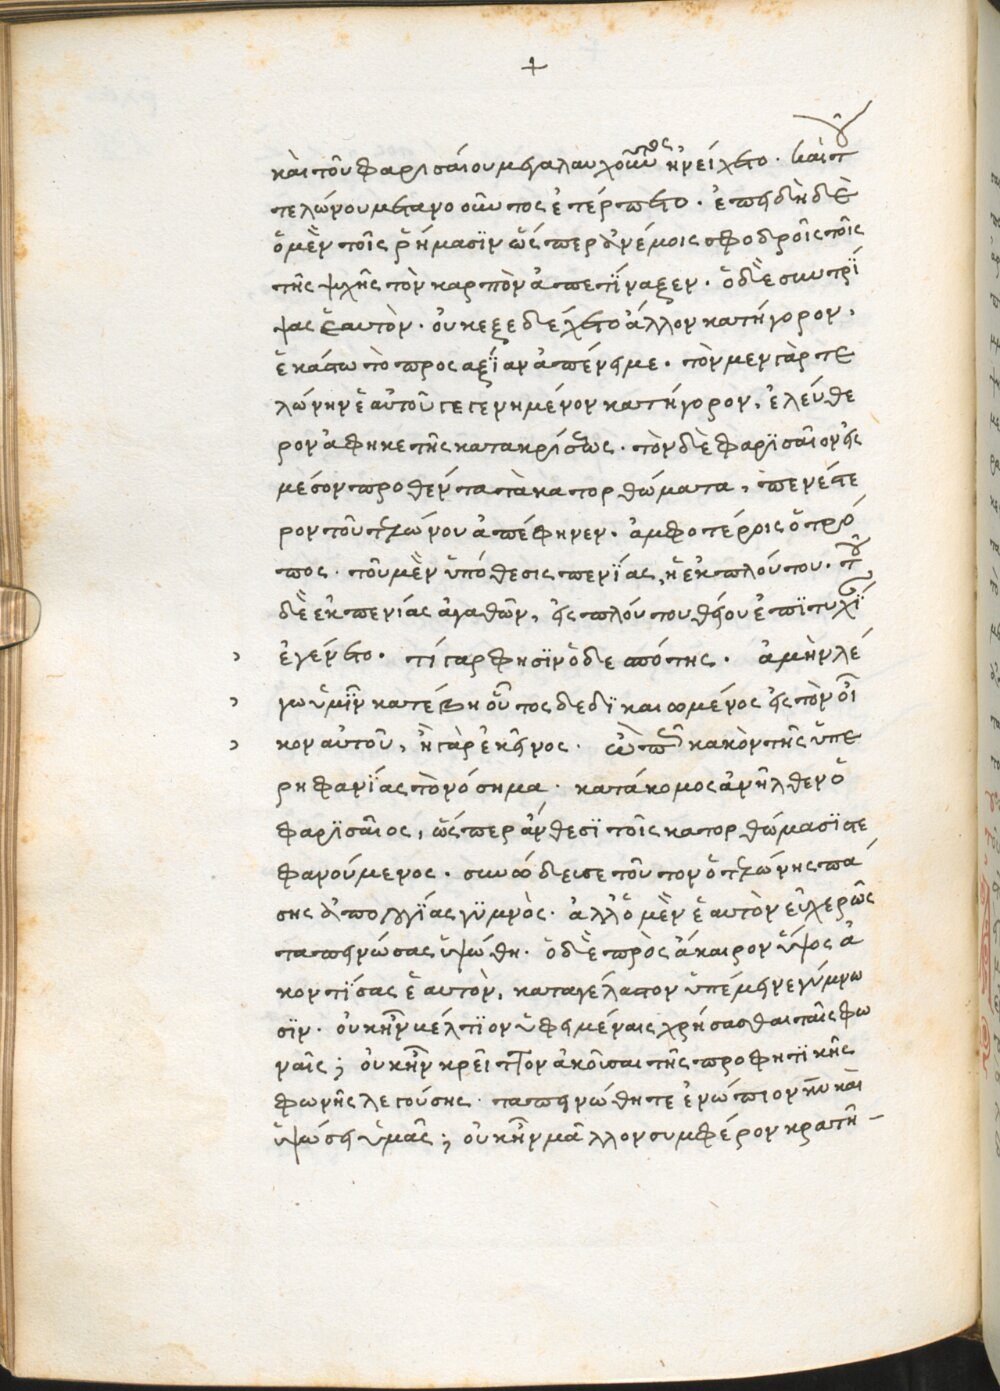 +
καὶ τοῦ φαρισαίου μεγαλαυχοῦντος ἠνείχετο. καὶ τοῦ
τελώνου μετανοοῦντος ἐτέρπετο. ἐπειδὴ δὲ
ὁ μὲν τοῖς ῥήμασϊν ὥσπερ ἀνέμοις σφοδροῖς τοῖς
τῆς ψχῆς τὸν καρπὸν ἀπετίναξεν. ὁ δὲ συντρί
ψας ἑαυτὸν. οὐκ ἐξεδέχετο ἄλλον κατήγορον,
ἑκάστω τὸ προς αξΐαν ἀπένειμε. τὸν μεν γὰρ τε
λώνην ἑαυτοῦ γεγενημένον κατήγορον, ἐλεύθε
ρον ἀφῆκε τῆς κατακρίσεως. τὸν δὲ φαρϊσαῖον εἰς
μέσον προθέντα τὰ κατορθώματα, πενέστε
ρον τοῦ τελώνου ἀπέφηνεν. ἀμφοτέροις ὁ τρό
πος. τοῦ μὲν ὑπόθεσις πενίας, ἡ ἐκ πλούτου. τοῦ
δὲ ἐκ πενίας ἀγαθῶν, εἰς πλούτου θείου ἐπϊτυχΐ
ἐγένετο. τί γαρ φησϊν ὁ δεσπότης. ἀμὴν λέ
γω ὑμῖν κατέβη οὗτος δεδϊκαιωμένος εἰς τὸν οἶ
κον αὐτοῦ, ἢ γὰρ ἐκεῖνος. ὢ πῶς κακὸν τῆς ὑπε
ρηφανίας τὸ νόσημα. κατάκομος ἀνῆλθεν ὁ
φαρϊσαῖος, ὥσπερ ἄνθεσϊ τοῖς κατορθώμασϊ στε
φανούμενος. συνώδευσε τοῦτον ὁ τελώνης πά
σης ἀπολογΐας γϋμνὸς. ἀλλ' ὁ μὲν ἑαυτὸν εὐχερῶς
ταπεινώσας ὑψώθη. ὁ δὲ πρὸς ἄκαιρον ὕψος ἀ
κοντΐσας ἑαυτὸν, καταγέλαστον ὑπέμεινε γύμνω
σϊν. οὐκ ἦν βέλτϊον ὑφειμέναις χρήσασθαι ταῖς φω
ναῖς; οὐκ ἦν κρεῖττον ἀκοῦσαι τῆς προφητϊκῆς
φωνῆς λεγούσης. ταπεινώθητε ἐνώπιον κυ καὶ
ὑψώσει ὑμᾶς; οὐκ ἦν μᾶλλον συμφέρον κρατῆ –